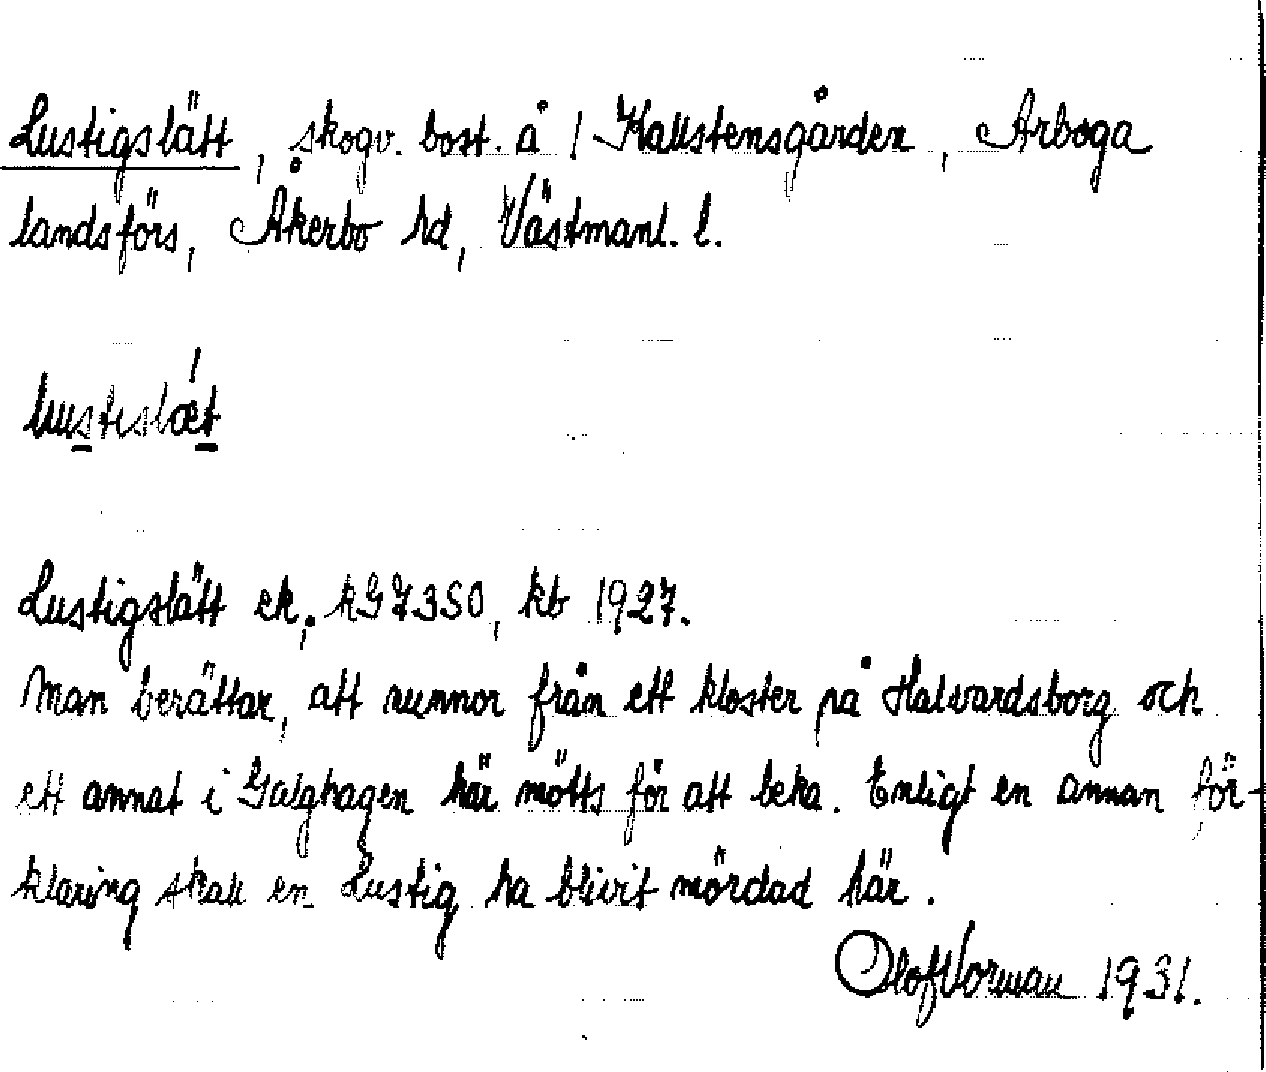 Lustigslätt, skogv. bost. å / Hallstensgården, Arboga
landsförs, Åkerbo hd, Västmanl. l.
Lustigslätt ek; kG7350, kb 1927.
Man berättar, att nunnor från ett kloster på Halvardsborg och
ett annat i Galghagen här mötts för att beka. Enligt en annan för-
klaring skall en Lustig ha blivit mördad här.
Olof Vorman 1931.